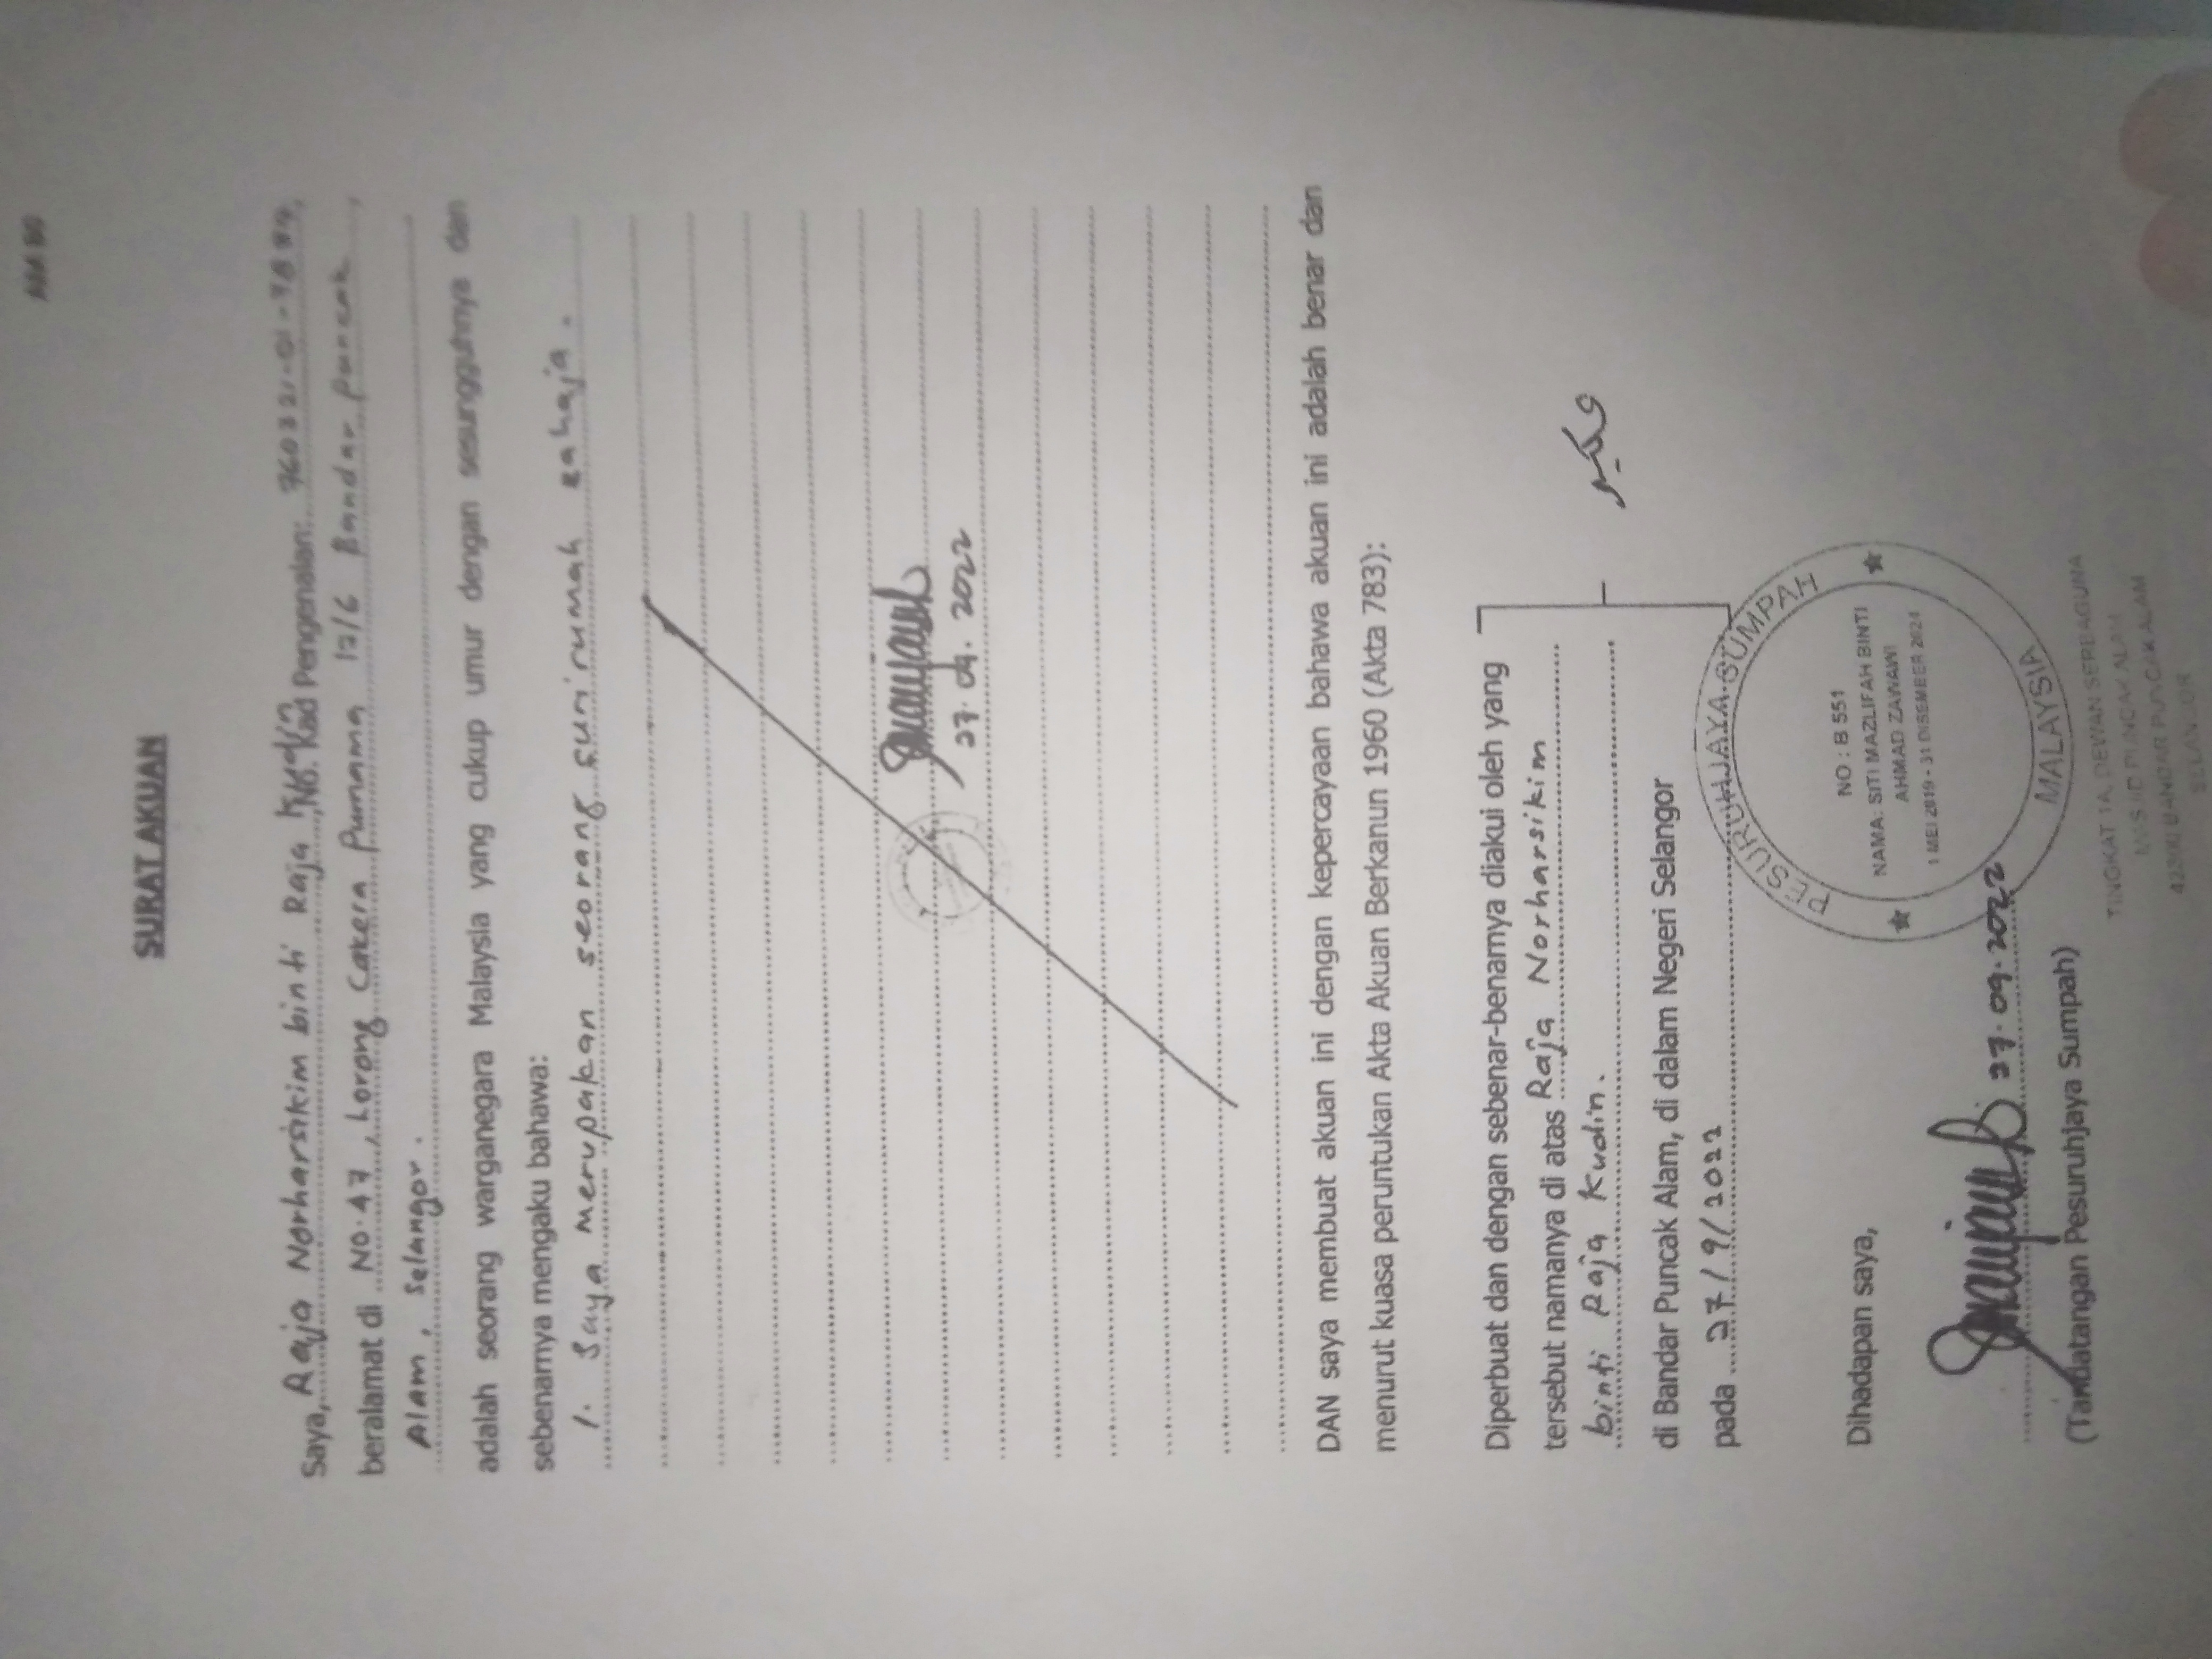 SURAT AKUAN
Saya, Raja Norharsikim binti Raja Kudin No. Kad Pengenalan:
beralamat di No. 47, Lorong Cakera Purnama 12/6 Bandar Puncak,
Alam, Selangor.
adalah seorang warganegara Malaysia yang cukup umur dengan sesungguhnya dan
sebenarnya mengaku bahawa:
1. Saya merupakan seorang surirumah sahaja.
27.09.2022
DAN saya membuat akuan ini dengan kepercayaan bahawa akuan ini adalah benar dan
menurut kuasa peruntukan Akta Akuan Berkanun 1960 (Akta 783):
Diperbuat dan dengan sebenar-benarnya diakui oleh yang
tersebut namanya di atas Raja Norharsikim
binti Raja Kudin.
di Bandar Puncak Alam, di dalam Negeri Selangor
pada 27/9/2022
Dihadapan saya,
PESURUHJAYA SUMPAH
NO : B 551
NAMA: SITI MAZLIFAH BINTI
AHMAD ZAWAWI
1 MEI 2019 - 31 DISEMBER 2024
MALAYSIA
27.09.2022
(Tandatangan Pesuruhjaya Sumpah)
TINGKAT 1A, DEWAN SERBAGUNA
MASJID PUNCAK ALAM
42300 BANDAR PUNCAK ALAM
SELANGOR